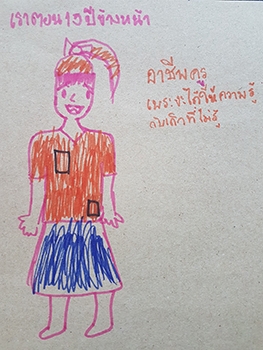 เราตอน 10 ปีข้างหน้า
อาชีพครู
เพราะจะได้ให้ความรู้
กับเด็กที่ไม่รู้